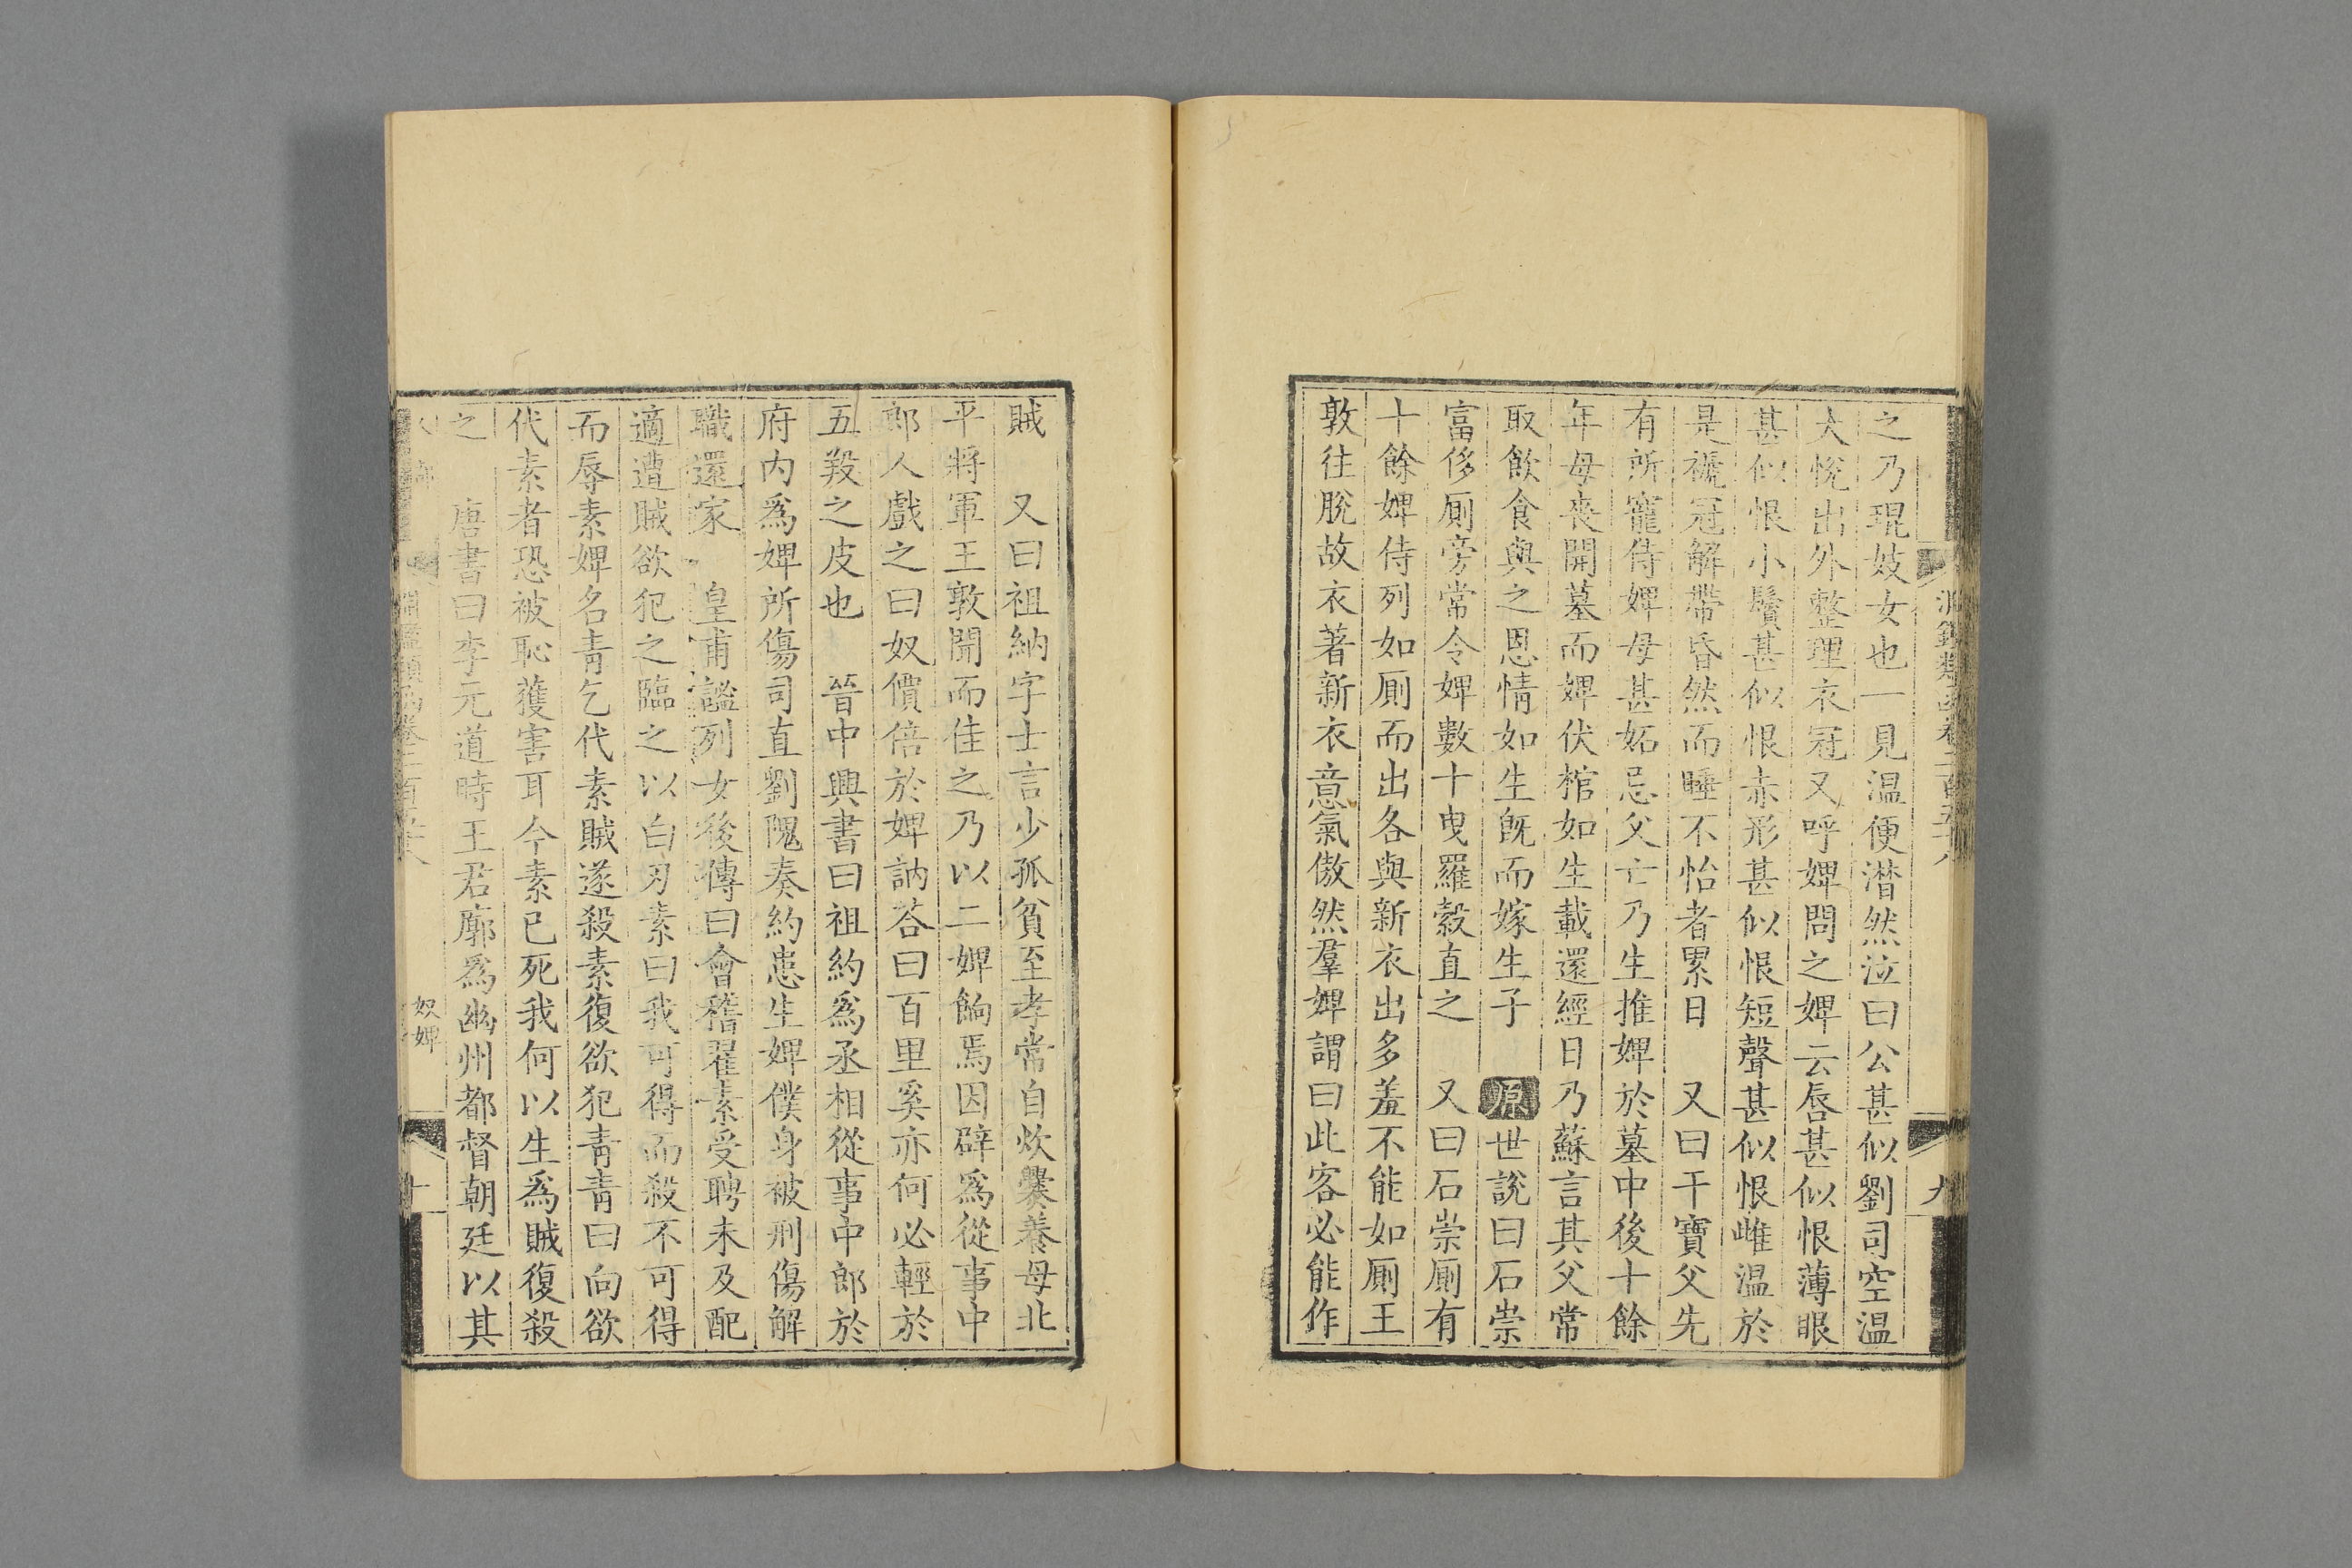 淵鑑類函卷二百五十八
九
之乃琨妓女也一見温便潸然泣曰公甚似劉司空温
大悅出外整理衣冠又呼婢問之婢云唇甚似恨薄眼
甚似恨小鬚甚似恨赤形甚似恨短聲甚似恨雌温於
是褫冠解帶昏然而睡不怡者累日　又曰干寶父先
有所寵侍婢母甚妬忌父亡乃生推婢於墓中後十餘
年母喪開墓而婢伏棺如生載還經日乃蘇言其父常
取飲食與之恩情如生旣而嫁生子　原世說曰石崇
富侈厠旁常令婢數十曳羅縠直之　又曰石崇厠有
十餘婢侍列如厠而出各與新衣出多羞不能如厠王
敦往脫故衣著新衣意氣傲然羣婢謂曰此客必能作
賊　又曰祖納字士言少孤貧至孝常自炊爨養母北
平將軍王敦聞而佳之乃以二婢餉焉因辟爲從事中
郎人戲之曰奴價倍於婢訥荅曰百里奚亦何必輕於
五羖之皮也　晉中興書曰祖約爲丞相從事中郎於
府内爲婢所傷司直劉隗奏約患生婢僕身被刑傷解
職還家　皇甫謐列女後傳曰會稽翟素受聘未及配
適遭賊欲犯之臨之以白刃素曰我可得而殺不可得
而辱素婢名青乞代素賊遂殺素復欲犯青青曰向欲
代素者恐被恥獲害耳今素已死我何以生爲賊復殺
之　唐書曰李元道時王君廓爲幽州都督朝廷以其
淵鑑類函卷二百五十八
奴婢
十